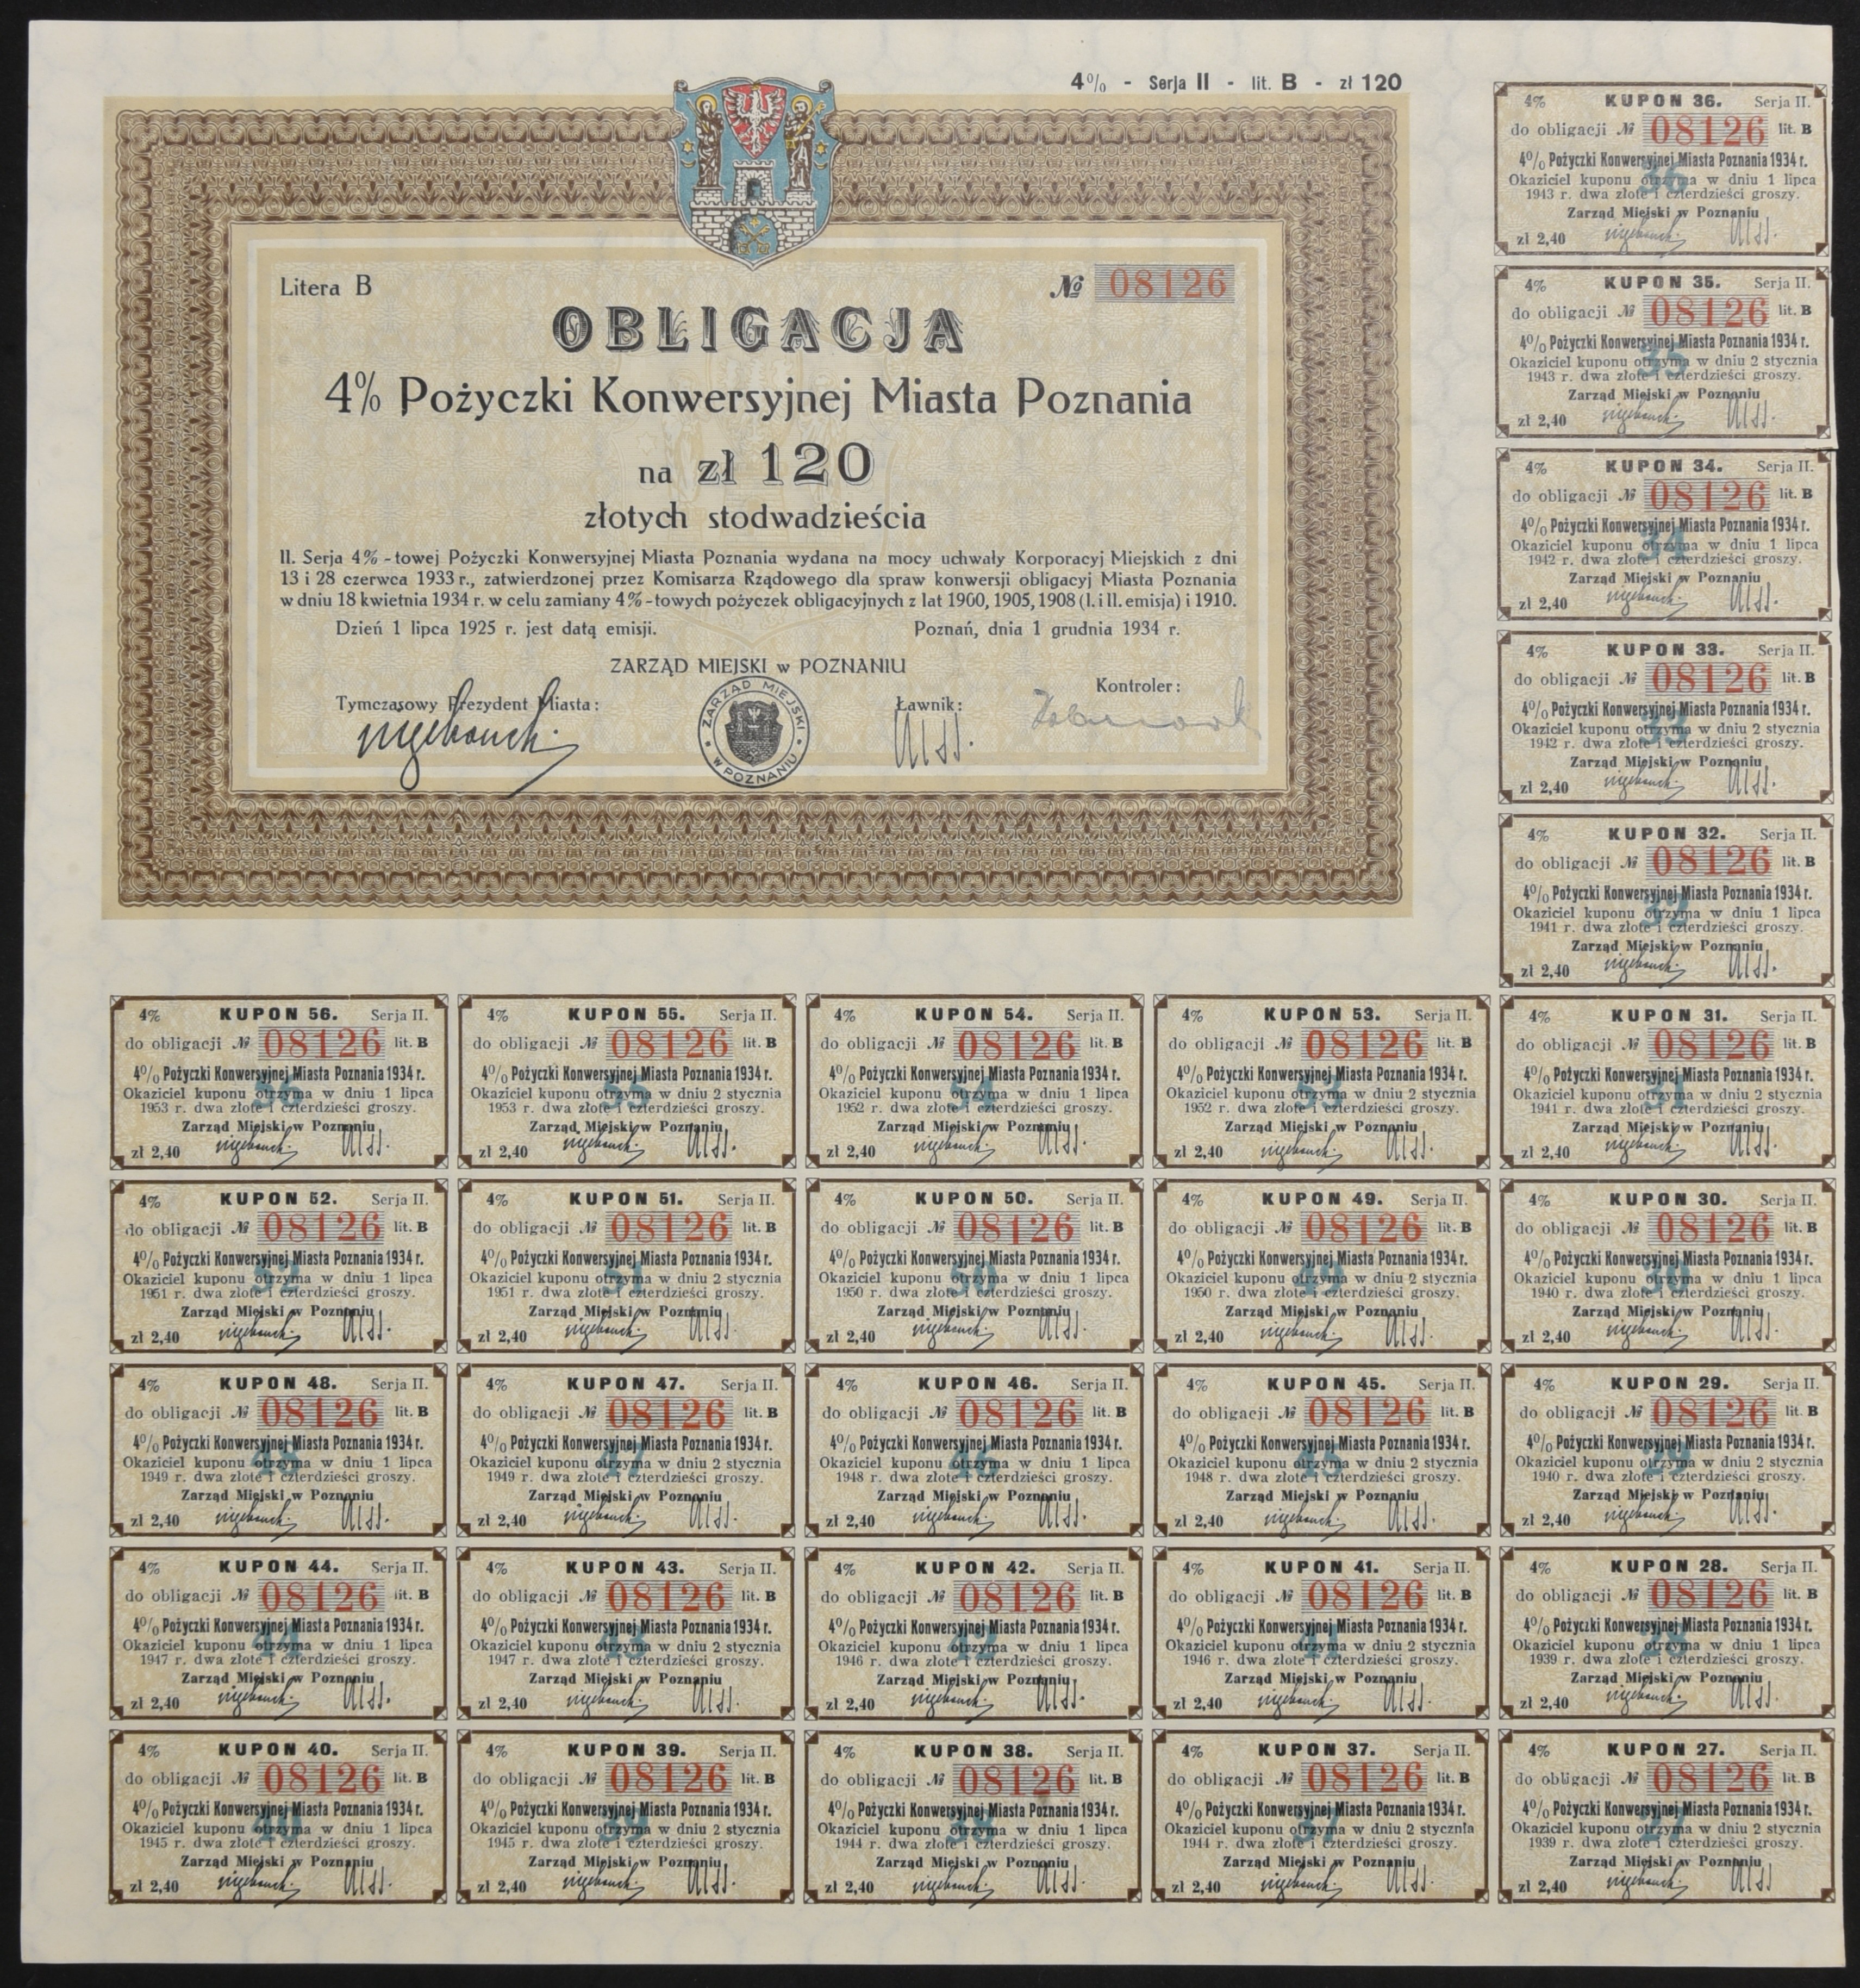 4% - Serja II - lit. B - zł 120
Litera B
№ 08126
OBLIGACJA
4% Pożyczki Konwersyjnej Miasta Poznania
na zł 120
złotych stodwadzieścia
II. Serja 4%-towej Pożyczki Konwersyjnej Miasta Poznania wydana na mocy uchwały Korporacyj Miejskich z dni
13 i 28 czerwca 1933 r., zatwierdzonej przez Komisarza Rządowego dla spraw konwersji obligacyj Miasta Poznania
w dniu 18 kwietnia 1934 r. w celu zamiany 4%-towych pożyczek obligacyjnych z lat 1900, 1905, 1908 (I. i II. emisja) i 1910.
Dzień 1 lipca 1925 r. jest datą emisji.
Poznań, dnia 1 grudnia 1934 r.
ZARZĄD MIEJSKI w POZNANIU
Tymczasowy Prezydent Miasta:
Ławnik:
Kontroler:
ZARZĄD MIEJSKI
W POZNANIU
4% KUPON 36. Serja II.
do obligacji № 08126 lit. B
4% Pożyczki Konwersyjnej Miasta Poznania 1934 r.
Okaziciel kuponu otrzyma w dniu 1 lipca
1943 r. dwa złote i czterdzieści groszy.
Zarząd Miejski w Poznaniu
zł 2,40
36
4% KUPON 35. Serja II.
do obligacji № 08126 lit. B
4% Pożyczki Konwersyjnej Miasta Poznania 1934 r.
Okaziciel kuponu otrzyma w dniu 2 stycznia
1943 r. dwa złote i czterdzieści groszy.
Zarząd Miejski w Poznaniu
zł 2,40
35
4% KUPON 34. Serja II.
do obligacji № 08126 lit. B
4% Pożyczki Konwersyjnej Miasta Poznania 1934 r.
Okaziciel kuponu otrzyma w dniu 1 lipca
1942 r. dwa złote i czterdzieści groszy.
Zarząd Miejski w Poznaniu
zł 2,40
34
4% KUPON 33. Serja II.
do obligacji № 08126 lit. B
4% Pożyczki Konwersyjnej Miasta Poznania 1934 r.
Okaziciel kuponu otrzyma w dniu 2 stycznia
1942 r. dwa złote i czterdzieści groszy.
Zarząd Miejski w Poznaniu
zł 2,40
33
4% KUPON 32. Serja II.
do obligacji № 08126 lit. B
4% Pożyczki Konwersyjnej Miasta Poznania 1934 r.
Okaziciel kuponu otrzyma w dniu 1 lipca
1941 r. dwa złote i czterdzieści groszy.
Zarząd Miejski w Poznaniu
zł 2,40
32
4% KUPON 56. Serja II.
do obligacji № 08126 lit. B
4% Pożyczki Konwersyjnej Miasta Poznania 1934 r.
Okaziciel kuponu otrzyma w dniu 1 lipca
1953 r. dwa złote i czterdzieści groszy.
Zarząd Miejski w Poznaniu
zł 2,40
56
4% KUPON 55. Serja II.
do obligacji № 08126 lit. B
4% Pożyczki Konwersyjnej Miasta Poznania 1934 r.
Okaziciel kuponu otrzyma w dniu 2 stycznia
1953 r. dwa złote i czterdzieści groszy.
Zarząd Miejski w Poznaniu
zł 2,40
55
4% KUPON 54. Serja II.
do obligacji № 08126 lit. B
4% Pożyczki Konwersyjnej Miasta Poznania 1934 r.
Okaziciel kuponu otrzyma w dniu 1 lipca
1952 r. dwa złote i czterdzieści groszy.
Zarząd Miejski w Poznaniu
zł 2,40
54
4% KUPON 53. Serja II.
do obligacji № 08126 lit. B
4% Pożyczki Konwersyjnej Miasta Poznania 1934 r.
Okaziciel kuponu otrzyma w dniu 2 stycznia
1952 r. dwa złote i czterdzieści groszy.
Zarząd Miejski w Poznaniu
zł 2,40
53
4% KUPON 31. Serja II.
do obligacji № 08126 lit. B
4% Pożyczki Konwersyjnej Miasta Poznania 1934 r.
Okaziciel kuponu otrzyma w dniu 2 stycznia
1941 r. dwa złote i czterdzieści groszy.
Zarząd Miejski w Poznaniu
zł 2,40
31
4% KUPON 52. Serja II.
do obligacji № 08126 lit. B
4% Pożyczki Konwersyjnej Miasta Poznania 1934 r.
Okaziciel kuponu otrzyma w dniu 1 lipca
1951 r. dwa złote i czterdzieści groszy.
Zarząd Miejski w Poznaniu
zł 2,40
52
4% KUPON 51. Serja II.
do obligacji № 08126 lit. B
4% Pożyczki Konwersyjnej Miasta Poznania 1934 r.
Okaziciel kuponu otrzyma w dniu 2 stycznia
1951 r. dwa złote i czterdzieści groszy.
Zarząd Miejski w Poznaniu
zł 2,40
51
4% KUPON 50. Serja II.
do obligacji № 08126 lit. B
4% Pożyczki Konwersyjnej Miasta Poznania 1934 r.
Okaziciel kuponu otrzyma w dniu 1 lipca
1950 r. dwa złote i czterdzieści groszy.
Zarząd Miejski w Poznaniu
zł 2,40
50
4% KUPON 49. Serja II.
do obligacji № 08126 lit. B
4% Pożyczki Konwersyjnej Miasta Poznania 1934 r.
Okaziciel kuponu otrzyma w dniu 2 stycznia
1950 r. dwa złote i czterdzieści groszy.
Zarząd Miejski w Poznaniu
zł 2,40
49
4% KUPON 30. Serja II.
do obligacji № 08126 lit. B
4% Pożyczki Konwersyjnej Miasta Poznania 1934 r.
Okaziciel kuponu otrzyma w dniu 1 lipca
1940 r. dwa złote i czterdzieści groszy.
Zarząd Miejski w Poznaniu
zł 2,40
30
4% KUPON 48. Serja II.
do obligacji № 08126 lit. B
4% Pożyczki Konwersyjnej Miasta Poznania 1934 r.
Okaziciel kuponu otrzyma w dniu 1 lipca
1949 r. dwa złote i czterdzieści groszy.
Zarząd Miejski w Poznaniu
zł 2,40
48
4% KUPON 47. Serja II.
do obligacji № 08126 lit. B
4% Pożyczki Konwersyjnej Miasta Poznania 1934 r.
Okaziciel kuponu otrzyma w dniu 2 stycznia
1949 r. dwa złote i czterdzieści groszy.
Zarząd Miejski w Poznaniu
zł 2,40
47
4% KUPON 46. Serja II.
do obligacji № 08126 lit. B
4% Pożyczki Konwersyjnej Miasta Poznania 1934 r.
Okaziciel kuponu otrzyma w dniu 1 lipca
1948 r. dwa złote i czterdzieści groszy.
Zarząd Miejski w Poznaniu
zł 2,40
46
4% KUPON 45. Serja II.
do obligacji № 08126 lit. B
4% Pożyczki Konwersyjnej Miasta Poznania 1934 r.
Okaziciel kuponu otrzyma w dniu 2 stycznia
1948 r. dwa złote i czterdzieści groszy.
Zarząd Miejski w Poznaniu
zł 2,40
45
4% KUPON 29. Serja II.
do obligacji № 08126 lit. B
4% Pożyczki Konwersyjnej Miasta Poznania 1934 r.
Okaziciel kuponu otrzyma w dniu 2 stycznia
1940 r. dwa złote i czterdzieści groszy.
Zarząd Miejski w Poznaniu
zł 2,40
29
4% KUPON 44. Serja II.
do obligacji № 08126 lit. B
4% Pożyczki Konwersyjnej Miasta Poznania 1934 r.
Okaziciel kuponu otrzyma w dniu 1 lipca
1947 r. dwa złote i czterdzieści groszy.
Zarząd Miejski w Poznaniu
zł 2,40
44
4% KUPON 43. Serja II.
do obligacji № 08126 lit. B
4% Pożyczki Konwersyjnej Miasta Poznania 1934 r.
Okaziciel kuponu otrzyma w dniu 2 stycznia
1947 r. dwa złote i czterdzieści groszy.
Zarząd Miejski w Poznaniu
zł 2,40
43
4% KUPON 42. Serja II.
do obligacji № 08126 lit. B
4% Pożyczki Konwersyjnej Miasta Poznania 1934 r.
Okaziciel kuponu otrzyma w dniu 1 lipca
1946 r. dwa złote i czterdzieści groszy.
Zarząd Miejski w Poznaniu
zł 2,40
42
4% KUPON 41. Serja II.
do obligacji № 08126 lit. B
4% Pożyczki Konwersyjnej Miasta Poznania 1934 r.
Okaziciel kuponu otrzyma w dniu 2 stycznia
1946 r. dwa złote i czterdzieści groszy.
Zarząd Miejski w Poznaniu
zł 2,40
41
4% KUPON 28. Serja II.
do obligacji № 08126 lit. B
4% Pożyczki Konwersyjnej Miasta Poznania 1934 r.
Okaziciel kuponu otrzyma w dniu 1 lipca
1939 r. dwa złote i czterdzieści groszy.
Zarząd Miejski w Poznaniu
zł 2,40
28
4% KUPON 40. Serja II.
do obligacji № 08126 lit. B
4% Pożyczki Konwersyjnej Miasta Poznania 1934 r.
Okaziciel kuponu otrzyma w dniu 1 lipca
1945 r. dwa złote i czterdzieści groszy.
Zarząd Miejski w Poznaniu
zł 2,40
40
4% KUPON 39. Serja II.
do obligacji № 08126 lit. B
4% Pożyczki Konwersyjnej Miasta Poznania 1934 r.
Okaziciel kuponu otrzyma w dniu 2 stycznia
1945 r. dwa złote i czterdzieści groszy.
Zarząd Miejski w Poznaniu
zł 2,40
39
4% KUPON 38. Serja II.
do obligacji № 08126 lit. B
4% Pożyczki Konwersyjnej Miasta Poznania 1934 r.
Okaziciel kuponu otrzyma w dniu 1 lipca
1944 r. dwa złote i czterdzieści groszy.
Zarząd Miejski w Poznaniu
zł 2,40
38
4% KUPON 37. Serja II.
do obligacji № 08126 lit. B
4% Pożyczki Konwersyjnej Miasta Poznania 1934 r.
Okaziciel kuponu otrzyma w dniu 2 stycznia
1944 r. dwa złote i czterdzieści groszy.
Zarząd Miejski w Poznaniu
zł 2,40
37
4% KUPON 27. Serja II.
do obligacji № 08126 lit. B
4% Pożyczki Konwersyjnej Miasta Poznania 1934 r.
Okaziciel kuponu otrzyma w dniu 2 stycznia
1939 r. dwa złote i czterdzieści groszy.
Zarząd Miejski w Poznaniu
zł 2,40
27